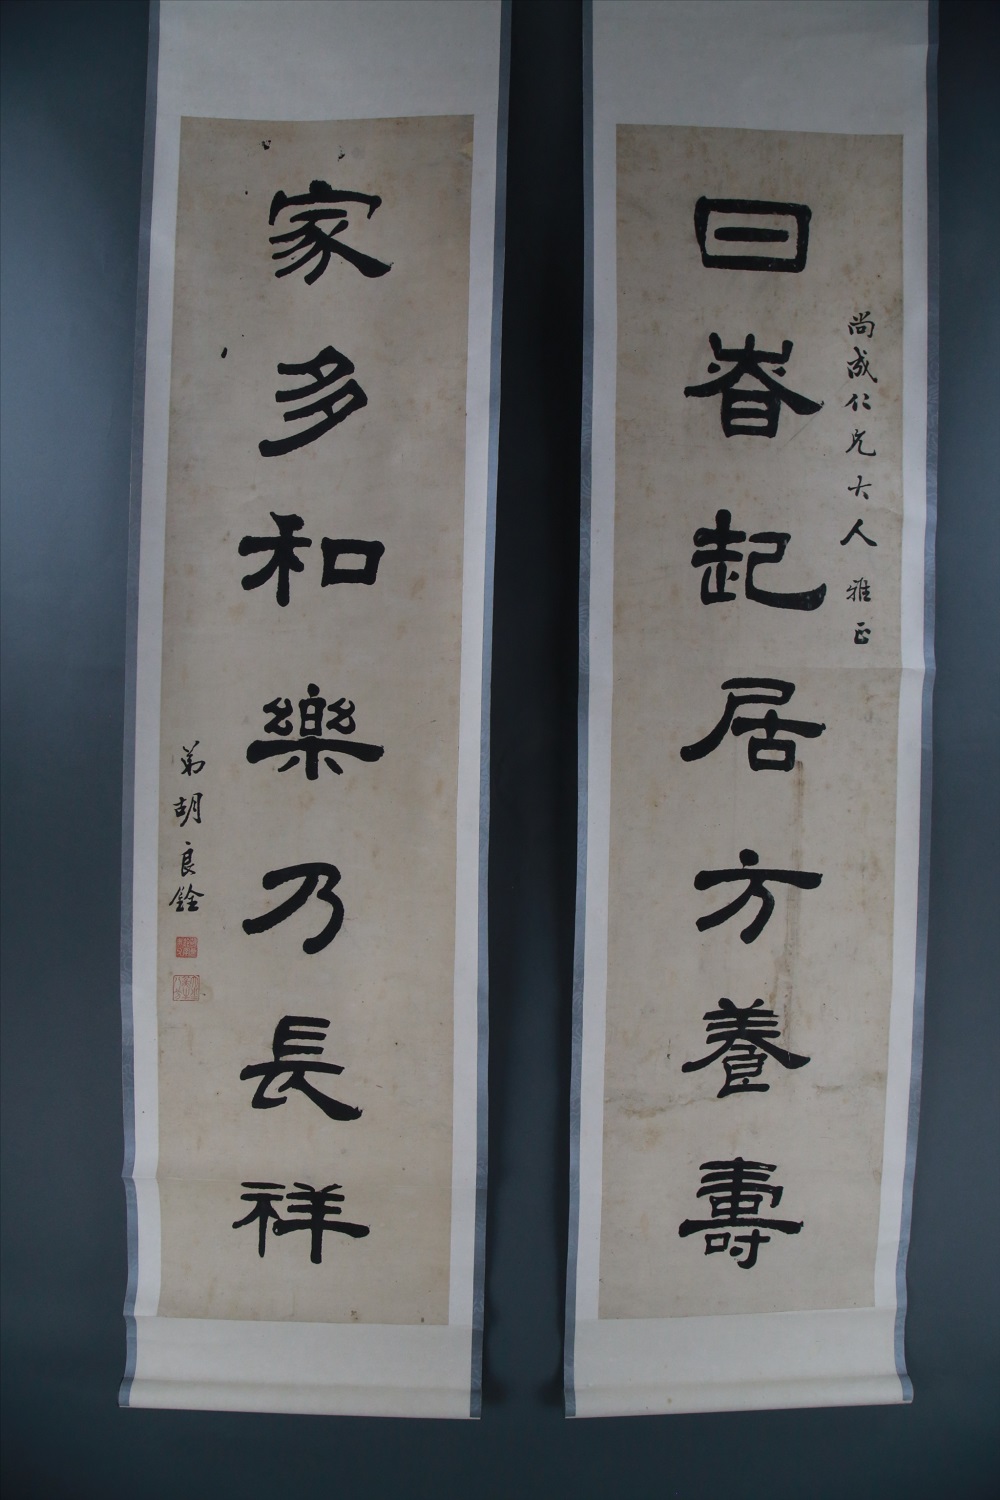 尚成仁兄大人雅正
日昚起居方養壽
家多和樂乃長祥
弟胡良銓